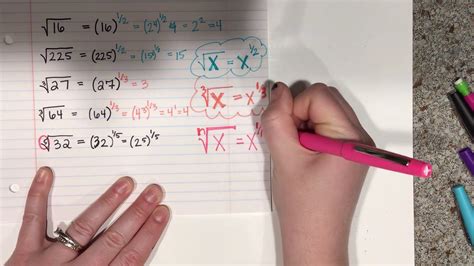 √16 = (16)^1/2 = (2⁴)^1/2 4 = 2² = 4
√225 = (225)^1/2 = (15²)^1/2 = 15
∛27 = (27)^1/3 = 3
∛64 = (64)^1/3 = (4³)^1/3 = 4¹ = 4
⁵√32 = (32)^1/5 = (2⁵)^1/5
√x = x^1/2
∛x = x^1/3
ⁿ√x = x^1/